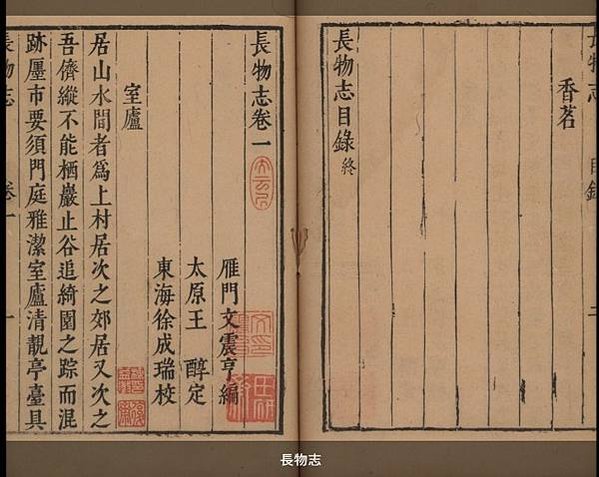 長物志 目錄 二
香茗
長物志目錄 終
長物志卷一
雁門文震亨編
太原王 醇定
東海徐成瑞校
室廬
居山水間者爲上村居次之郊居又次之
吾儕縱不能栖巖止谷追綺園之踪而混
跡廛市要須門庭雅潔室廬清靚亭臺具
長物志 卷一 一
長物志